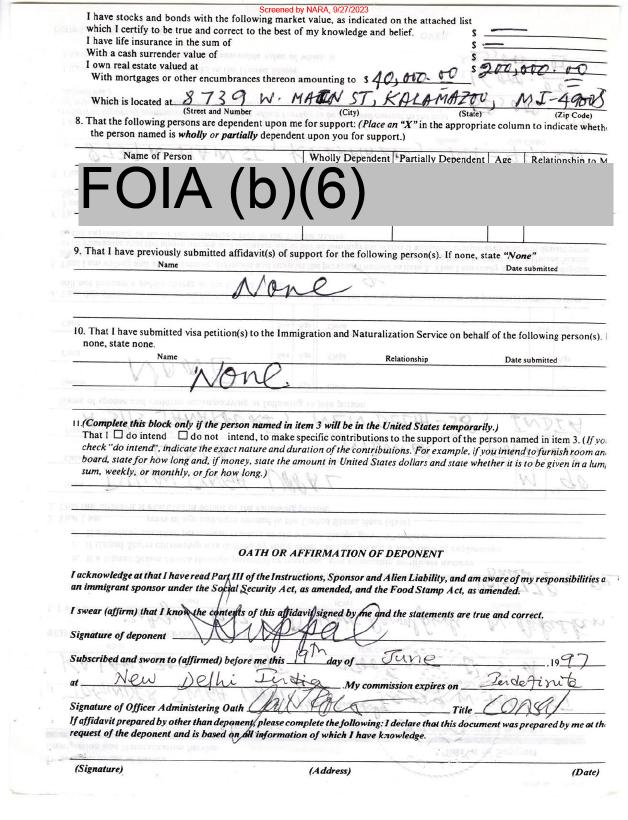 Screened by NARA, 9/27/2023
I have stocks and bonds with the following market value, as indicated on the attached list
which I certify to be true and correct to the best of my knowledge and belief. $ —
I have life insurance in the sum of $ —
With a cash surrender value of $
I own real estate valued at $ 200,000.00
With mortgages or other encumbrances thereon amounting to $ 40,000.00
Which is located at 8739 W. MAIN ST, KALAMAZOO, MI-49009
(Street and Number) (City) (State) (Zip Code)
8. That the following persons are dependent upon me for support: (Place an "X" in the appropriate column to indicate wheth
the person named is wholly or partially dependent upon you for support.)
Name of Person Wholly Dependent Partially Dependent Age Relationship to M
FOIA (b)(6)
9. That I have previously submitted affidavit(s) of support for the following person(s). If none, state "None"
Name Date submitted
None
10. That I have submitted visa petition(s) to the Immigration and Naturalization Service on behalf of the following person(s). I
none, state none.
Name Relationship Date submitted
None.
11.(Complete this block only if the person named in item 3 will be in the United States temporarily.)
That I ☐ do intend ☐ do not intend, to make specific contributions to the support of the person named in item 3. (If yo
check "do intend", indicate the exact nature and duration of the contributions. For example, if you intend to furnish room an
board, state for how long and, if money, state the amount in United States dollars and state whether it is to be given in a lum
sum, weekly, or monthly, or for how long.)
OATH OR AFFIRMATION OF DEPONENT
I acknowledge at that I have read Part III of the Instructions, Sponsor and Alien Liability, and am aware of my responsibilities a
an immigrant sponsor under the Social Security Act, as amended, and the Food Stamp Act, as amended.
I swear (affirm) that I know the contents of this affidavit signed by me and the statements are true and correct.
Signature of deponent
Subscribed and sworn to (affirmed) before me this 19th day of June ,1997
at New Delhi India .My commission expires on Indefinite
Signature of Officer Administering Oath Title
If affidavit prepared by other than deponent, please complete the following: I declare that this document was prepared by me at th
request of the deponent and is based on all information of which I have knowledge.
(Signature) (Address) (Date)